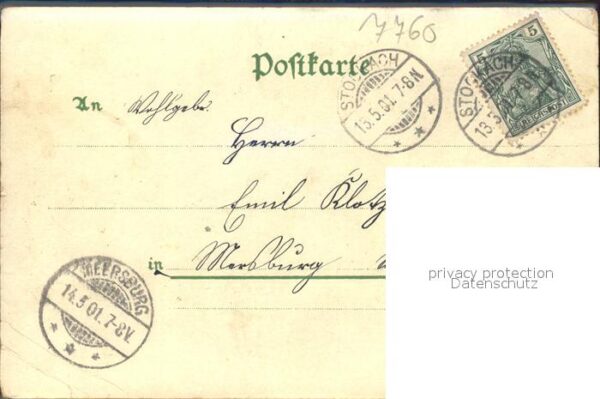 7760
Postkarte
STOCKACH
13.5.01.7-8N
STOCKACH
13.5.01.7-8N
5
REICHSPOST
An Wohlgeb.
Herrn
Emil Klotz
in Mersburg
MEERSBURG
14.5.01.7-8V.
privacy protection
Datenschutz